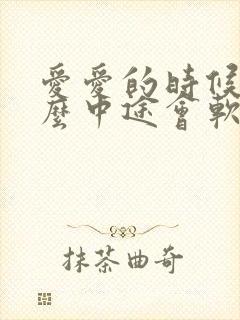 愛愛的時候
麼中途會軟
抹茶曲奇